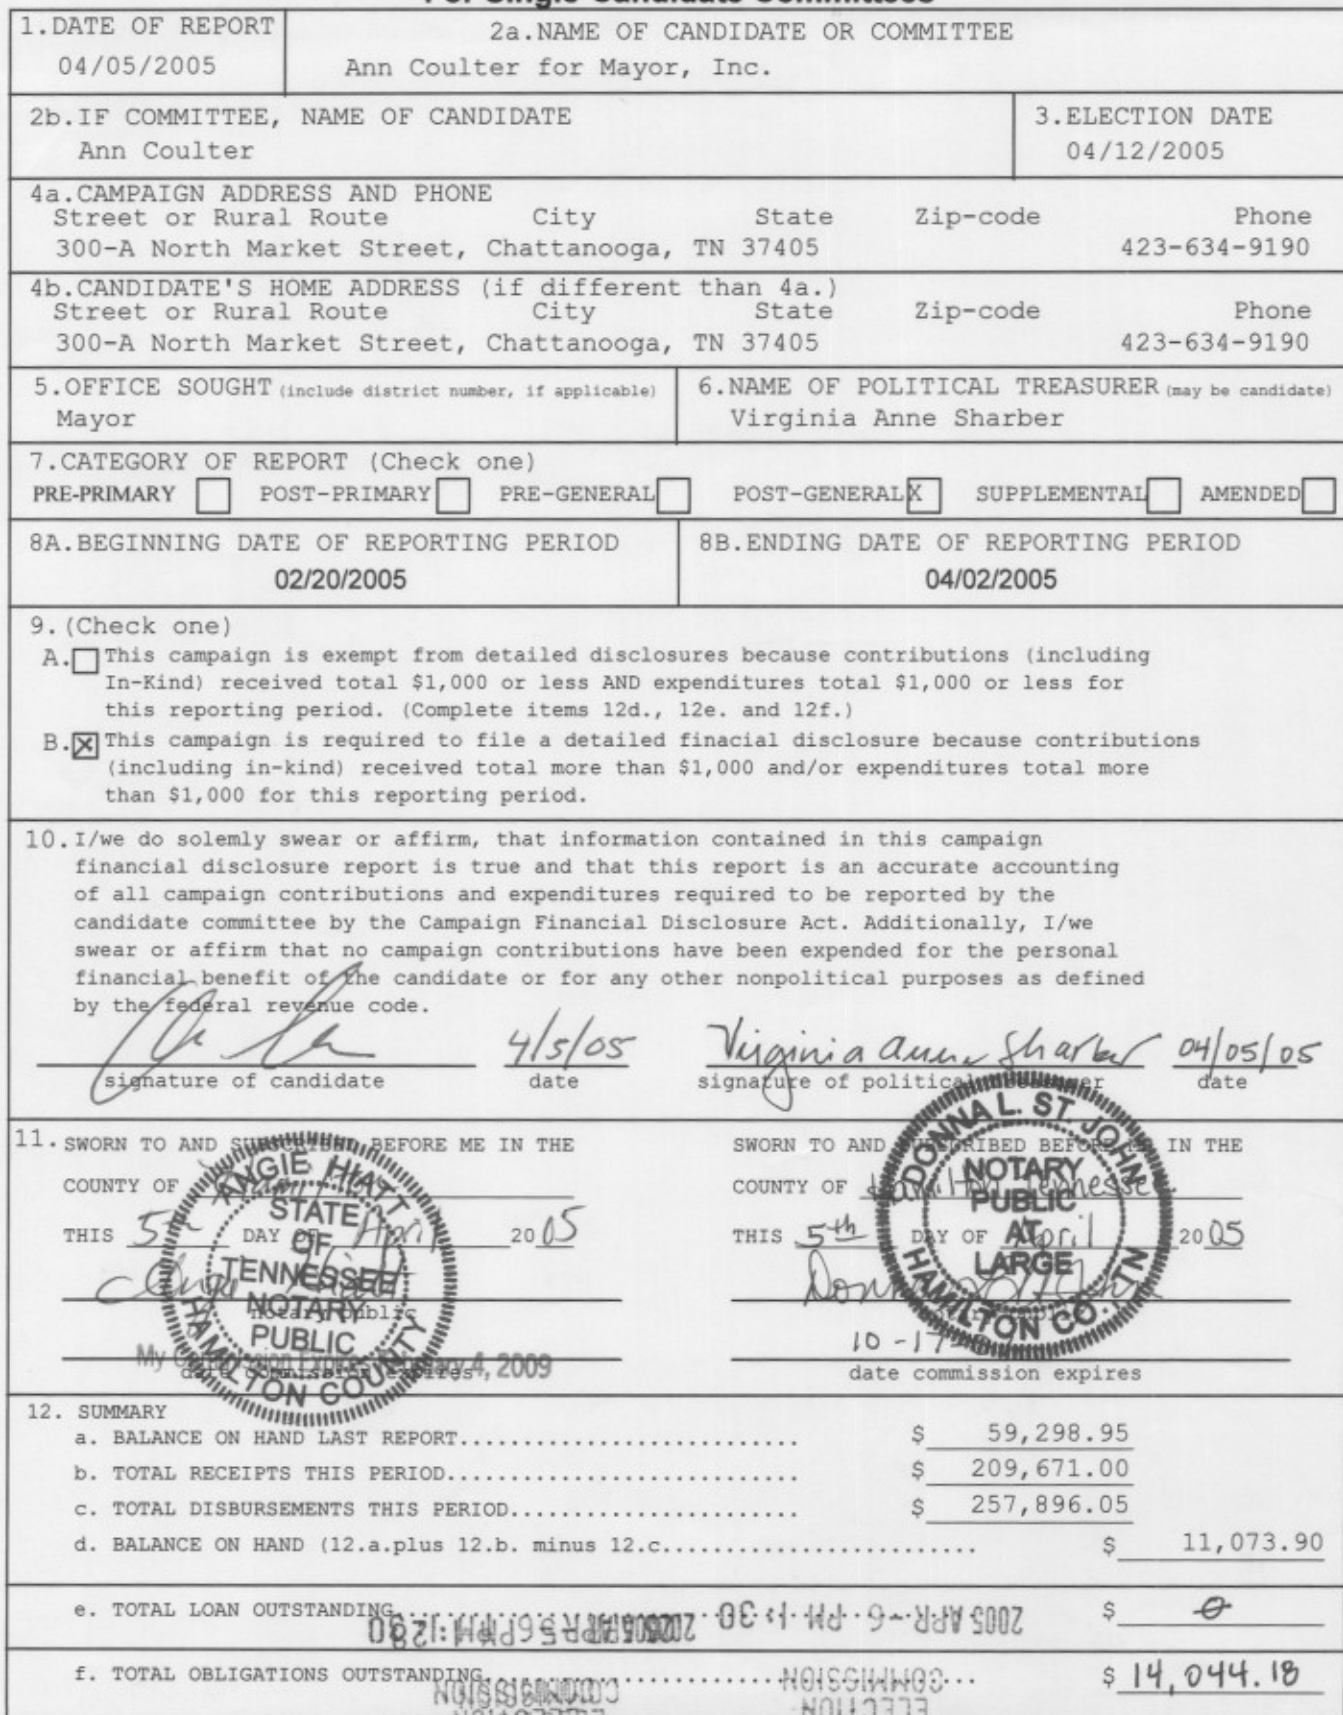 For Single Candidate Committees
1.DATE OF REPORT
04/05/2005
2a.NAME OF CANDIDATE OR COMMITTEE
Ann Coulter for Mayor, Inc.
2b.IF COMMITTEE, NAME OF CANDIDATE
Ann Coulter
3.ELECTION DATE
04/12/2005
4a.CAMPAIGN ADDRESS AND PHONE
Street or Rural Route City State Zip-code Phone
300-A North Market Street, Chattanooga, TN 37405 423-634-9190
4b.CANDIDATE'S HOME ADDRESS (if different than 4a.)
Street or Rural Route City State Zip-code Phone
300-A North Market Street, Chattanooga, TN 37405 423-634-9190
5.OFFICE SOUGHT (include district number, if applicable)
Mayor
6.NAME OF POLITICAL TREASURER (may be candidate)
Virginia Anne Sharber
7.CATEGORY OF REPORT (Check one)
PRE-PRIMARY POST-PRIMARY PRE-GENERAL POST-GENERAL X SUPPLEMENTAL AMENDED
8A.BEGINNING DATE OF REPORTING PERIOD
02/20/2005
8B.ENDING DATE OF REPORTING PERIOD
04/02/2005
9.(Check one)
A. This campaign is exempt from detailed disclosures because contributions (including
In-Kind) received total $1,000 or less AND expenditures total $1,000 or less for
this reporting period. (Complete items 12d., 12e. and 12f.)
B. X This campaign is required to file a detailed finacial disclosure because contributions
(including in-kind) received total more than $1,000 and/or expenditures total more
than $1,000 for this reporting period.
10.I/we do solemly swear or affirm, that information contained in this campaign
financial disclosure report is true and that this report is an accurate accounting
of all campaign contributions and expenditures required to be reported by the
candidate committee by the Campaign Financial Disclosure Act. Additionally, I/we
swear or affirm that no campaign contributions have been expended for the personal
financial benefit of the candidate or for any other nonpolitical purposes as defined
by the federal revenue code.
4/5/05 Virginia Anne Sharber 04/05/05
signature of candidate date signature of political date
11. SWORN TO AND SUBSCRIBED BEFORE ME IN THE
COUNTY OF
THIS 5th DAY OF April 2005
notary public
My Commission Expires 4, 2009
date commission expires
ANGIE HIATT
STATE
OF
TENNESSEE
NOTARY
PUBLIC
HAMILTON COUNTY
SWORN TO AND SUBSCRIBED BEFORE ME IN THE
COUNTY OF Hamilton Tennessee
THIS 5th DAY OF April 2005
10-17
date commission expires
DONNA L. ST. JOHN
NOTARY
PUBLIC
AT
LARGE
HAMILTON CO., TN
12. SUMMARY
a. BALANCE ON HAND LAST REPORT........................... $ 59,298.95
b. TOTAL RECEIPTS THIS PERIOD............................ $ 209,671.00
c. TOTAL DISBURSEMENTS THIS PERIOD....................... $ 257,896.05
d. BALANCE ON HAND (12.a.plus 12.b. minus 12.c......................... $ 11,073.90
e. TOTAL LOAN OUTSTANDING $ 0
2005 APR -6 PM 1:30
f. TOTAL OBLIGATIONS OUTSTANDING $ 14,044.18
COMMISSION COMMISSION
ELECTION